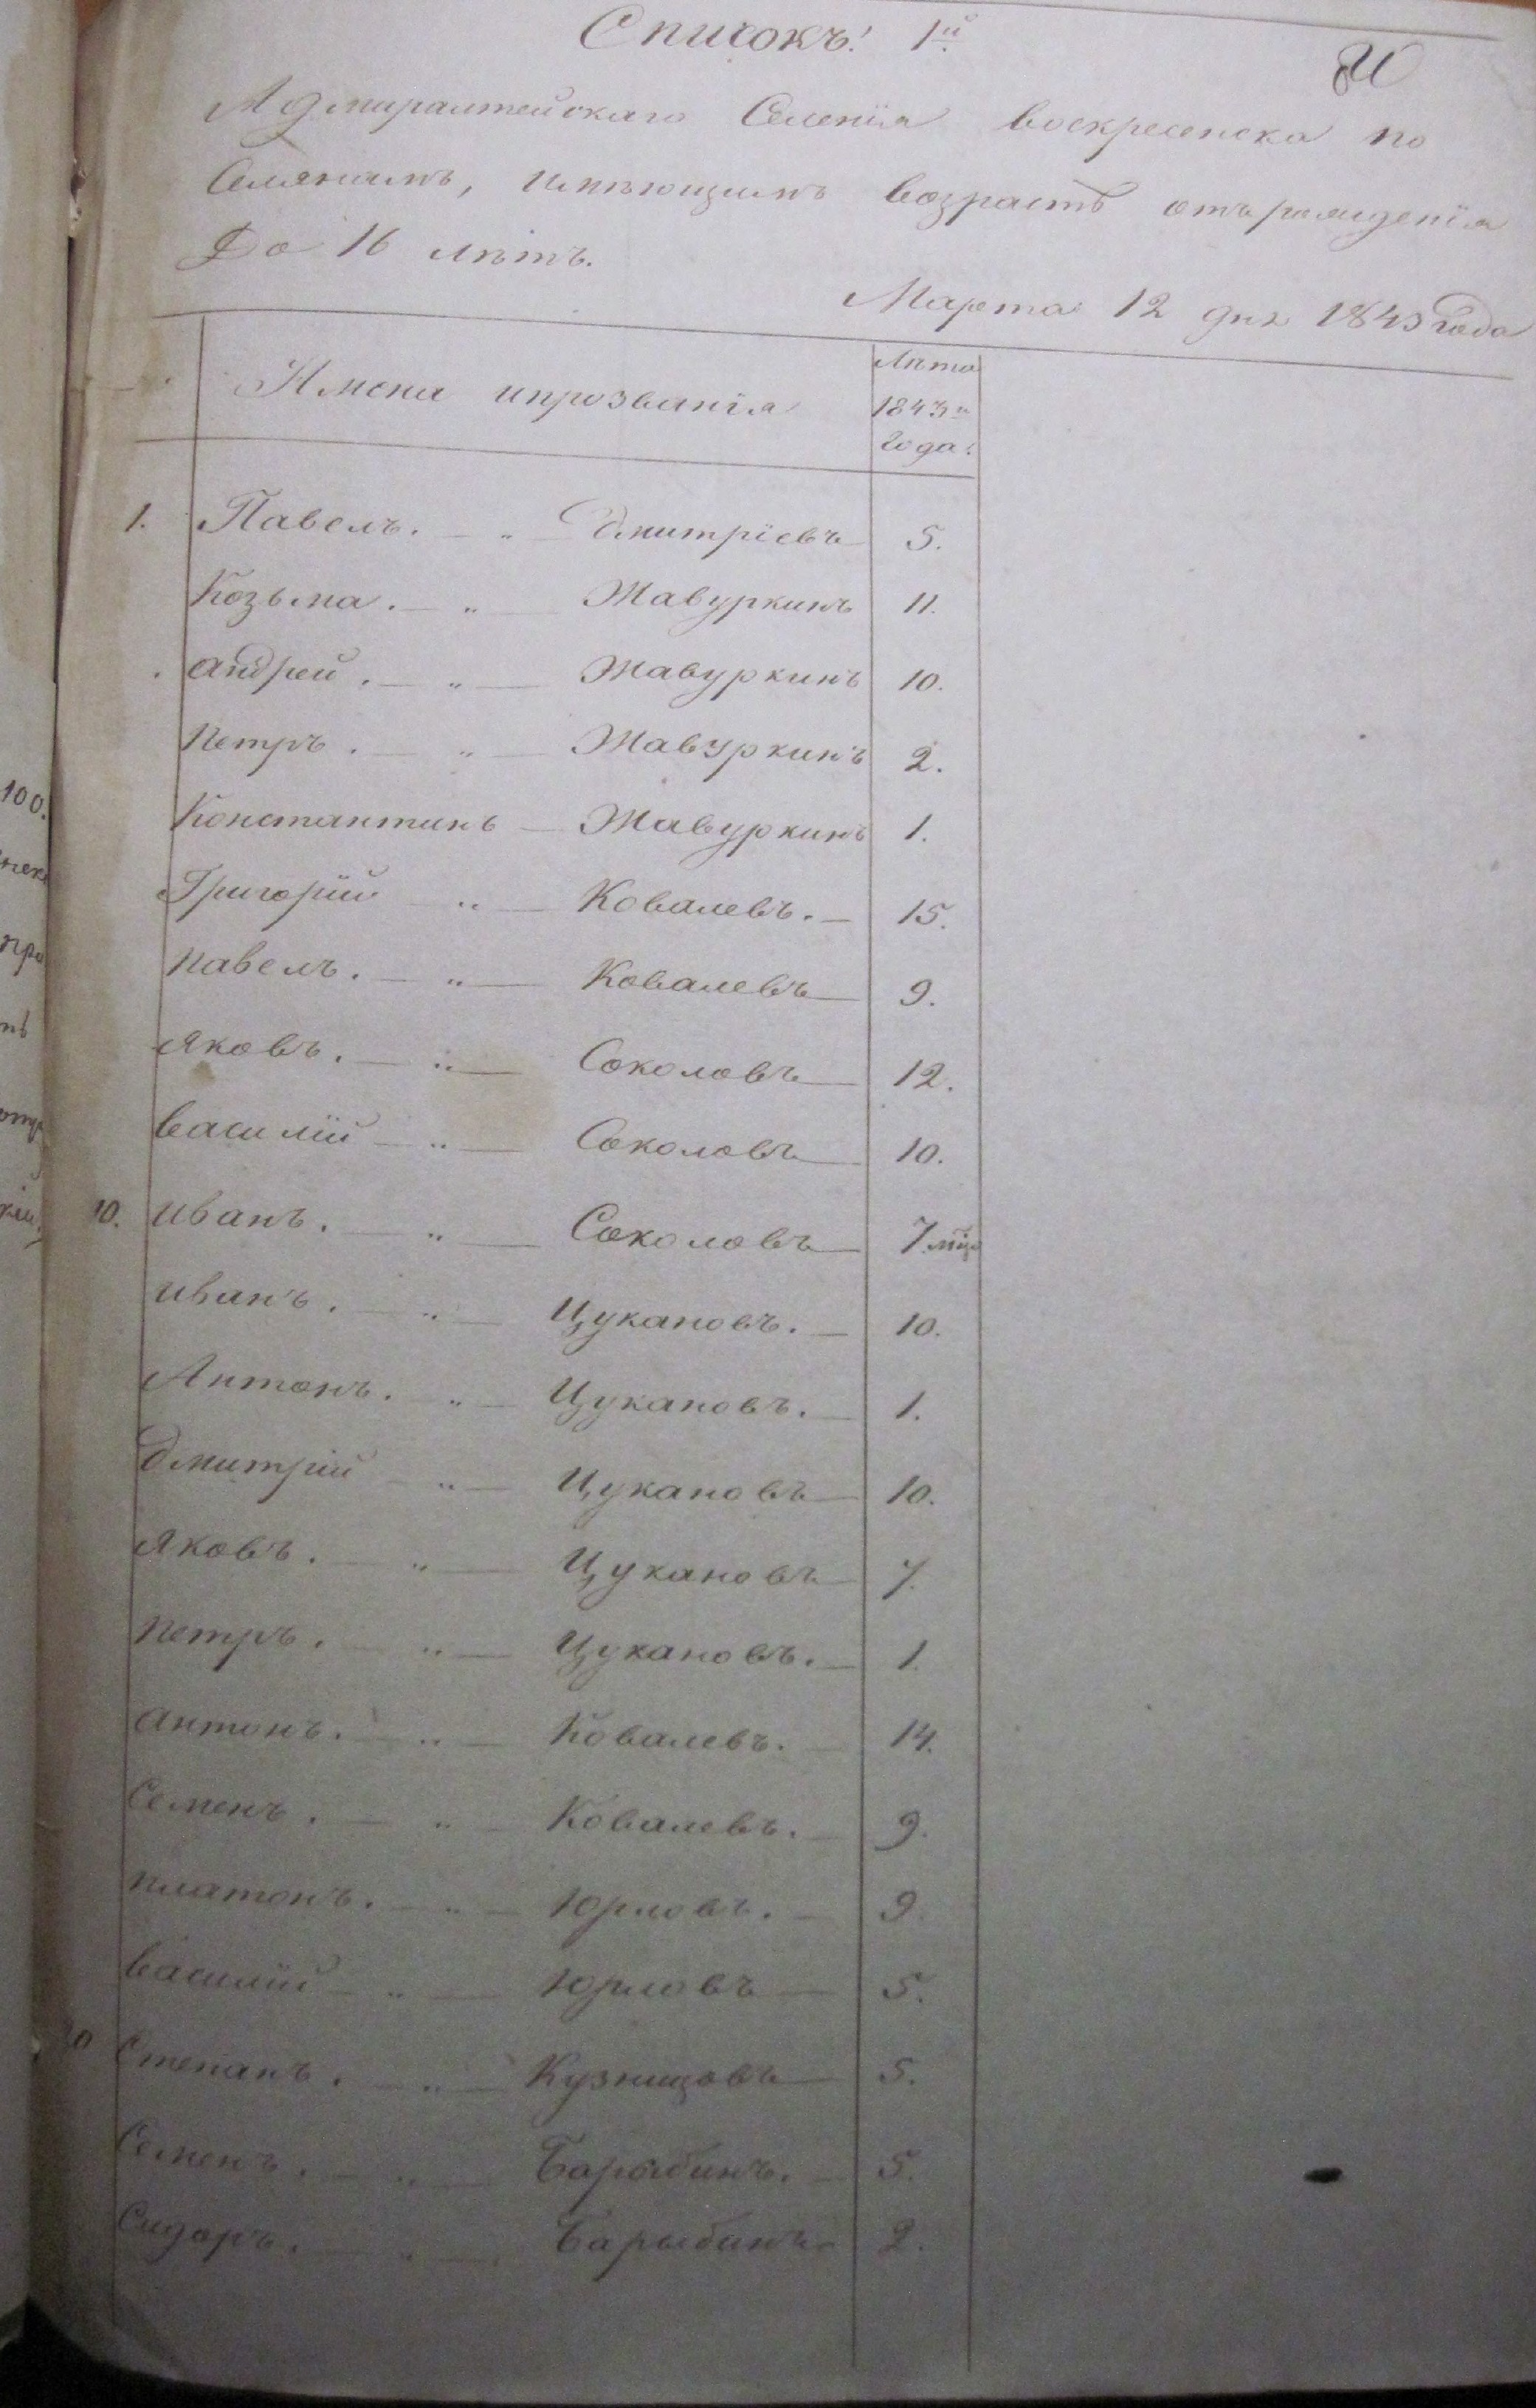 Списокъ! 1й
Адмиралтейскаго Селенія воскресенска по
Селянамъ, имѣющимъ возрастъ отъ рожденія
До 16 лѣтъ.
Марта 12 дня 1843 года
Имена ипрозванія Лѣта
1843го
года.
1. Павелъ. Дмитріевъ 5.
Козьма. Жавуркинъ 11.
андрей. Жавуркинъ 10.
петръ. Жавуркинъ 2.
Константинъ Жавуркинъ 1.
Григорій Ковалевъ. 15.
павелъ. Ковалевъ 9.
яковъ. Соколовъ 12.
василій Соколовъ 10.
10. иванъ. Соколовъ 7 мцо
иванъ. Цукановъ. 10.
Антонъ. Цукановъ. 1.
дмитрій Цукановъ 10.
яковъ. Цукановъ 7.
петръ. Цукановъ. 1.
антонъ. Ковалевъ. 14.
Семенъ. Ковалевъ. 9.
платонъ. Юрловъ. 9.
василій Юрловъ 5.
Степанъ. Кузнецовъ 5.
Семенъ. Барыбинъ. 5.
Сидоръ. Барыбинъ 2.
100.